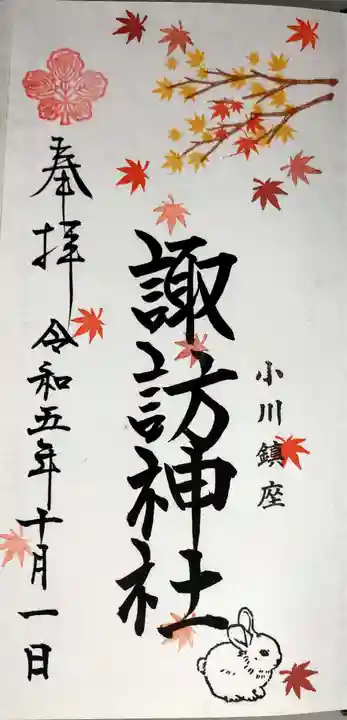 小川鎮座
諏訪神社
奉拝 令和五年十月一日